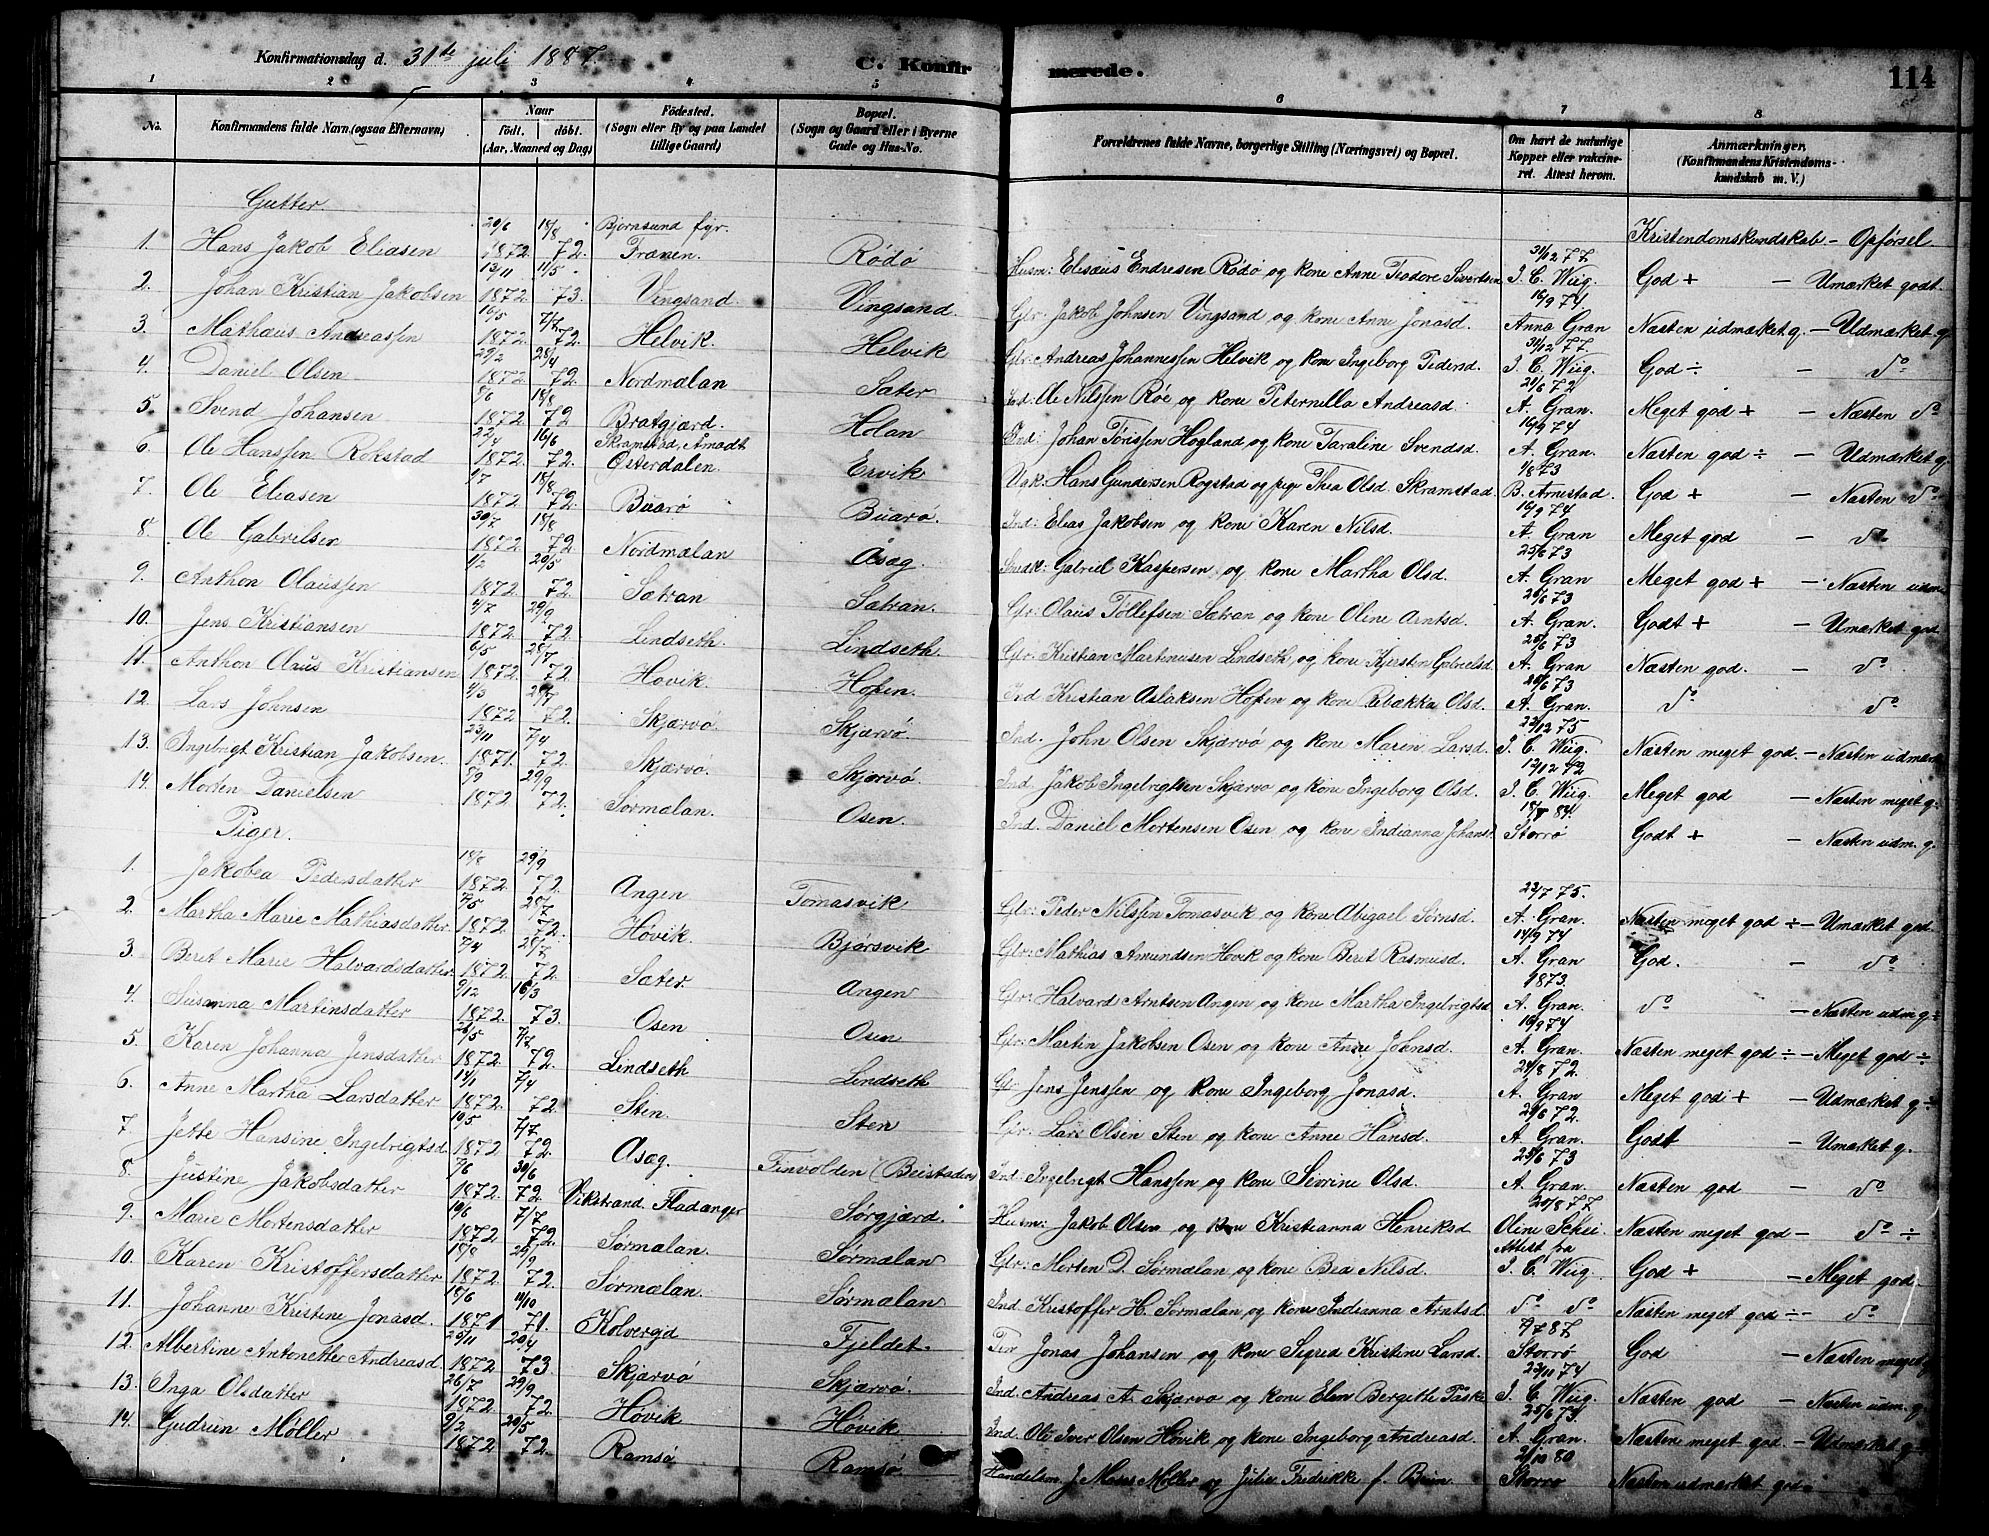 Konfirmationsdag d. 31te juli 1887.
C. Konfirmerede.
114
1 2 3 4 5 6 7 8
No.
Konfirmandens fulde Navn (ogsaa Efternavn)
Naar födt. döbt. (Aar, Maaned og Dag)
Födested. (Sogn eller By og paa Landet tillige Gaard)
Bopæl. (Sogn og Gaard eller i Byerne Gade og Hus-No.
Forældrenes fulde Navne, borgerlige Stilling (Næringsvei) og Bopæl.
Om havt de naturlige Kopper eller vakcineret. Attest herom.
Anmærkninger, (Konfirmandens Kristendomskundskab m. V.)
Gutter.
Kristendomskundskab – Opførsel
1. Hans Jakob Eliasen 20/6 1872 18/8 72. Bjornsund fyr. Frænen. Rödö Husm: Elisæus Endresen Rödö og kone Anne Teodore Sivertsen 31/12 77 I. C. Wiig. God + – Umærket godt.
2. Johan Kristian Jakobsen 13/11 1872 11/5 73. Vingsand Vingsand. Gbr. Jakob Johnsen Vingsand og kone Anne Jonasd. 16/9 74 Anna Gran Næsten udmæket g. – Udmærket g.
3. Mathæus Andreassen 16/5 1872. 7/7 72. Helvik. Helvik Gbr. Andreas Johannessen Helvik og kone Ingeborg Pedersd. 31/12 77 I. C. Wiig. God ÷ – do
4. Daniel Olsen 29/2 1872 28/4 72. Nordmælan Sæter Ind: Ole Nilssen Röe og kone Peternella Andreasd. 21/6 72 A. Gran. Meget god + – Næsten do
5. Svend Johansen 5/6 1872 18/8 72 Bratgjærd. Holan Ind: Johan Törissen Hogland og kone Taraline Svendsd. 16/9 74 A. Gran. Næsten god ÷ – Udmærket g.
6. Ole Hanssen Rokstad 22/4 1872. 16/6 72. Skramstad, Aamodt Østerdalen Ervik Upk: Hans Gundersen Rogstad og pige Thea Olsd. Skramstad. 1/8 73 B. Arnestad. God + – Næsten do
7. Ole Eliasen 1872 18/8 72. Buarö Buarö. Ind: Elias Jakobsen og kone Karen Nilsd. 16/9 74 A. Gran Meget god – do
8. Ole Gabrilsen 30/7 1872 18/8 72. Nordmælan Åsæg. Smedk: Gabriel Kaspersen og kone Martha Olsd. 25/6 73 A. Gran Meget god + – Næsten udm
9. Anthon Olaussen 1/2 1872 20/5 72. Sætran Sætran. Gbr: Olaus Tollefsen Sætran og kone Oline Arntsd. 26/6 73 A. Gran. Godt + – Umærket god
10. Jens Kristiansen 4/7 1872. 29/9 72. Lindseth. Lindseth Gbr. Kristian Martenusen Lindseth og kone Kjersten Gabrielsd. 25/6 73 A. Gran Næsten god. – do
11. Anthon Olaus Kristiansen 6/5 1872 28/7 72 Hövik. Hopen. Ind Kristian Aslaksen Hopen og kone Rebækka Olsd. 25/6 73 A. Gran. do do
12. Lars Johnsen 4/3 1872. 72. Skjærvö Skjærvö. Ind. John Olsen Skjærvö og kone Maren Larsd. 22/12 75 I. C. Wiig. Næsten meget god. – Næsten udmærk
13. Ingebrigt Kristian Jakobsen. 23/11 1871. 7/4 72. Skjærvo. Skjærvö. Ind Jakob Ingebrigtsen Skjærvo og kone Ingeborg Olsd. 12/12 72 I. C. Wiig. Meget god – Næsten meget g.
14. Morten Danielsen 1872 29/9 72. Sormælan. Osen. Ind. Daniel Mortensen Osen og kone Indianna Johans Storrö Godt + – Næsten udm. g.
Piger.
1. Jakobea Pedersdatter 18/8 1872. 29/9 72. Angen Tomasvik Gbr: Peder Nilssen Tomasvik og kone Abigael Sörnsd. 23/7 75. A. Gran. Næsten meget god ÷ – Umærket god.
2. Martha Marie Mathiasdatter 7/5 1872. 28/7 72. Hövik. Björsvik Gbr: Mathias Amundsen Hövik og kone Berit Rasmusd. 14/9 74 A. Gran God. – do
3. Beret Marie Halvardsdatter 7/4 1872. 28/7 72. Sæter Angen Gbr: Halvard Arntsen Angen og kone Martha Ingebrigtsd 1873. A. Gran do – Næsten udm g ÷
4. Susanna Martinsdatter 9/12 1872. 16/3 73. Osen Osen Gbr: Martin Jakobsen Osen og kone Anne Johnsd. 16/9 74 A. Gran. Næsten meget god ÷ – Meget god ÷
5. Karen Johanna Jensdatter 26/5 1872. 7/7 72. Lindseth Lindseth Gbr Jens Jenssen og kone Ingeborg Jonasd. 24/8 72. A. Gran Meget god + – Udmærket g ÷
6. Anne Martha Larsdatter 14/1 1872. 7/4 72. Sten. Sten Gbr. Lars Olsen Sten og kone Anne Hansd. 21/6 72. A. Gran. Godt – Umærket g.
7. Jette Hansine Ingebrigtsd 19/5 1872. 7/7 72. Asæg. Finvolden (Beistaden) Ind: Ingebrigt Hanssen og kone Sivrine Olsd. 25/6 73 A. Gran. Næsten god – do
8. Justine Jakobsdatter 7/6 1872. 30/6 72. Vikstrand, Fladanger Sörgjærd. Husm: Jakob Olsen og kone Kristianna Henriksd 20/8 77 Oline Næsten meget god – do ÷
9. Marie Mortensdatter 10/6 1872. 7/7 72. Sörmælan. Sörmælan Gbr: Morten D. Sörmælan og kone Bea Nilsd. Attest fra I. C. Wiig. God + – Meget god.
10. Karen Kristoffersdatter 18/8 1872. 29/9 72. Sörmælan. Sörmælan Ind Kristoffer H. Sormælan og kone Indianna Arntsd. do do Næsten meget god ÷ – do
11. Johanne Kristine Jonasd. 18/6 1871 71. Kolvereid Fjeldet. Jonas Johansen og kone Sigrid Kristine Larsd. 7/7 87 Storrö God – Næsten meget g
12. Albertine Antonette Andreasd 25/11 1872 20/4 73. Skjærvö Skjærvö. Ind. Andreas A. Skjærvo og kone Elen Bergitte 23/11 74 I. C. Wiig. Næsten god – Næsten udm. g.
13. Inga Olsdatter 26/7 1872. 29/9 72. Hövik Hövik Ind. Ole Iver Olsen Hövik og kone Ingeborg Andreasd. 25/6 73. A. Gran. Næsten meget god. – Udmærket g
14. Gudrun Möller 9/2 1872 20/5 72. Ramsö Ramsö Handelsm. J. Möller og Julie Fredrikke f. 2/10 80 Storrö Næsten udmærket god.